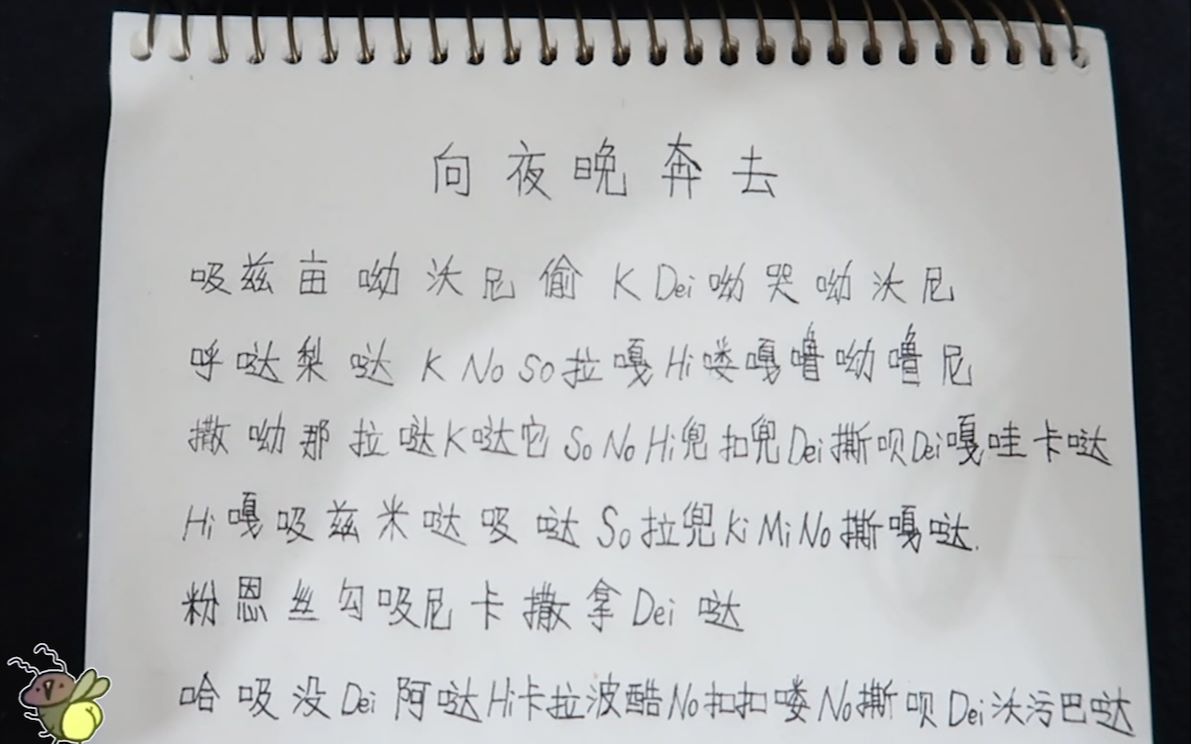 向夜晚奔去
吸兹亩呦沃尼偷 K Dei呦哭呦沃尼
呼哒梨哒 K No So拉嘎Hi喽嘎噜呦噜尼
撒呦那拉哒K哒它 So No Hi兜扣兜Dei撕呗Dei嘎哇卡哒
Hi嘎吸兹米哒吸哒 So拉兜Ki Mi No撕嘎哒.
粉恩丝勾吸尼卡撒拿Dei 哒
哈吸没Dei 阿哒Hi卡拉波酷No扣扣喽No撕呗Dei沃污巴哒